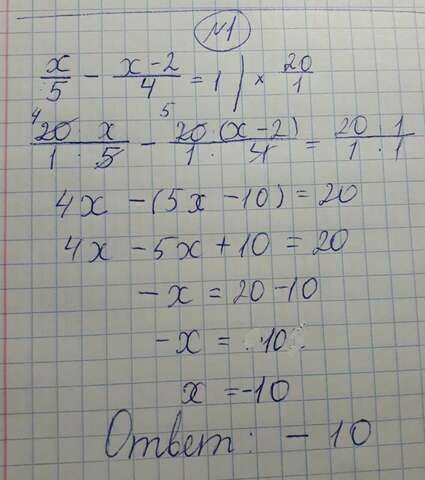 №1
x/5 - (x-2)/4 = 1 | × 20/1
⁴20 x/1 · 5 - ⁵20 (x-2)/1 · 4 = 20 1/1 · 1
4x - (5x - 10) = 20
4x - 5x + 10 = 20
-x = 20 - 10
-x = 10
x = -10
Ответ: - 10